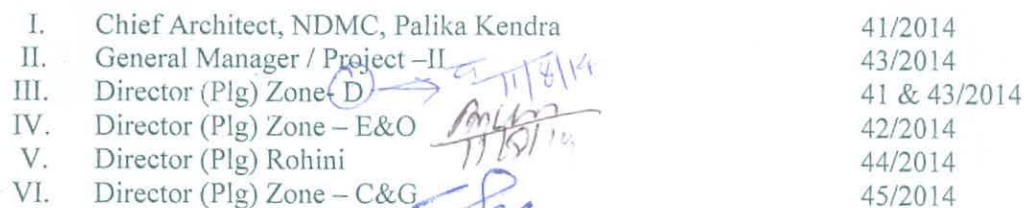 I. Chief Architect, NDMC, Palika Kendra 41/2014
II. General Manager / Project –II 43/2014
III. Director (Plg) Zone- D 11/8/14 41 & 43/2014
IV. Director (Plg) Zone – E&O 42/2014
V. Director (Plg) Rohini 44/2014
VI. Director (Plg) Zone – C&G 45/2014